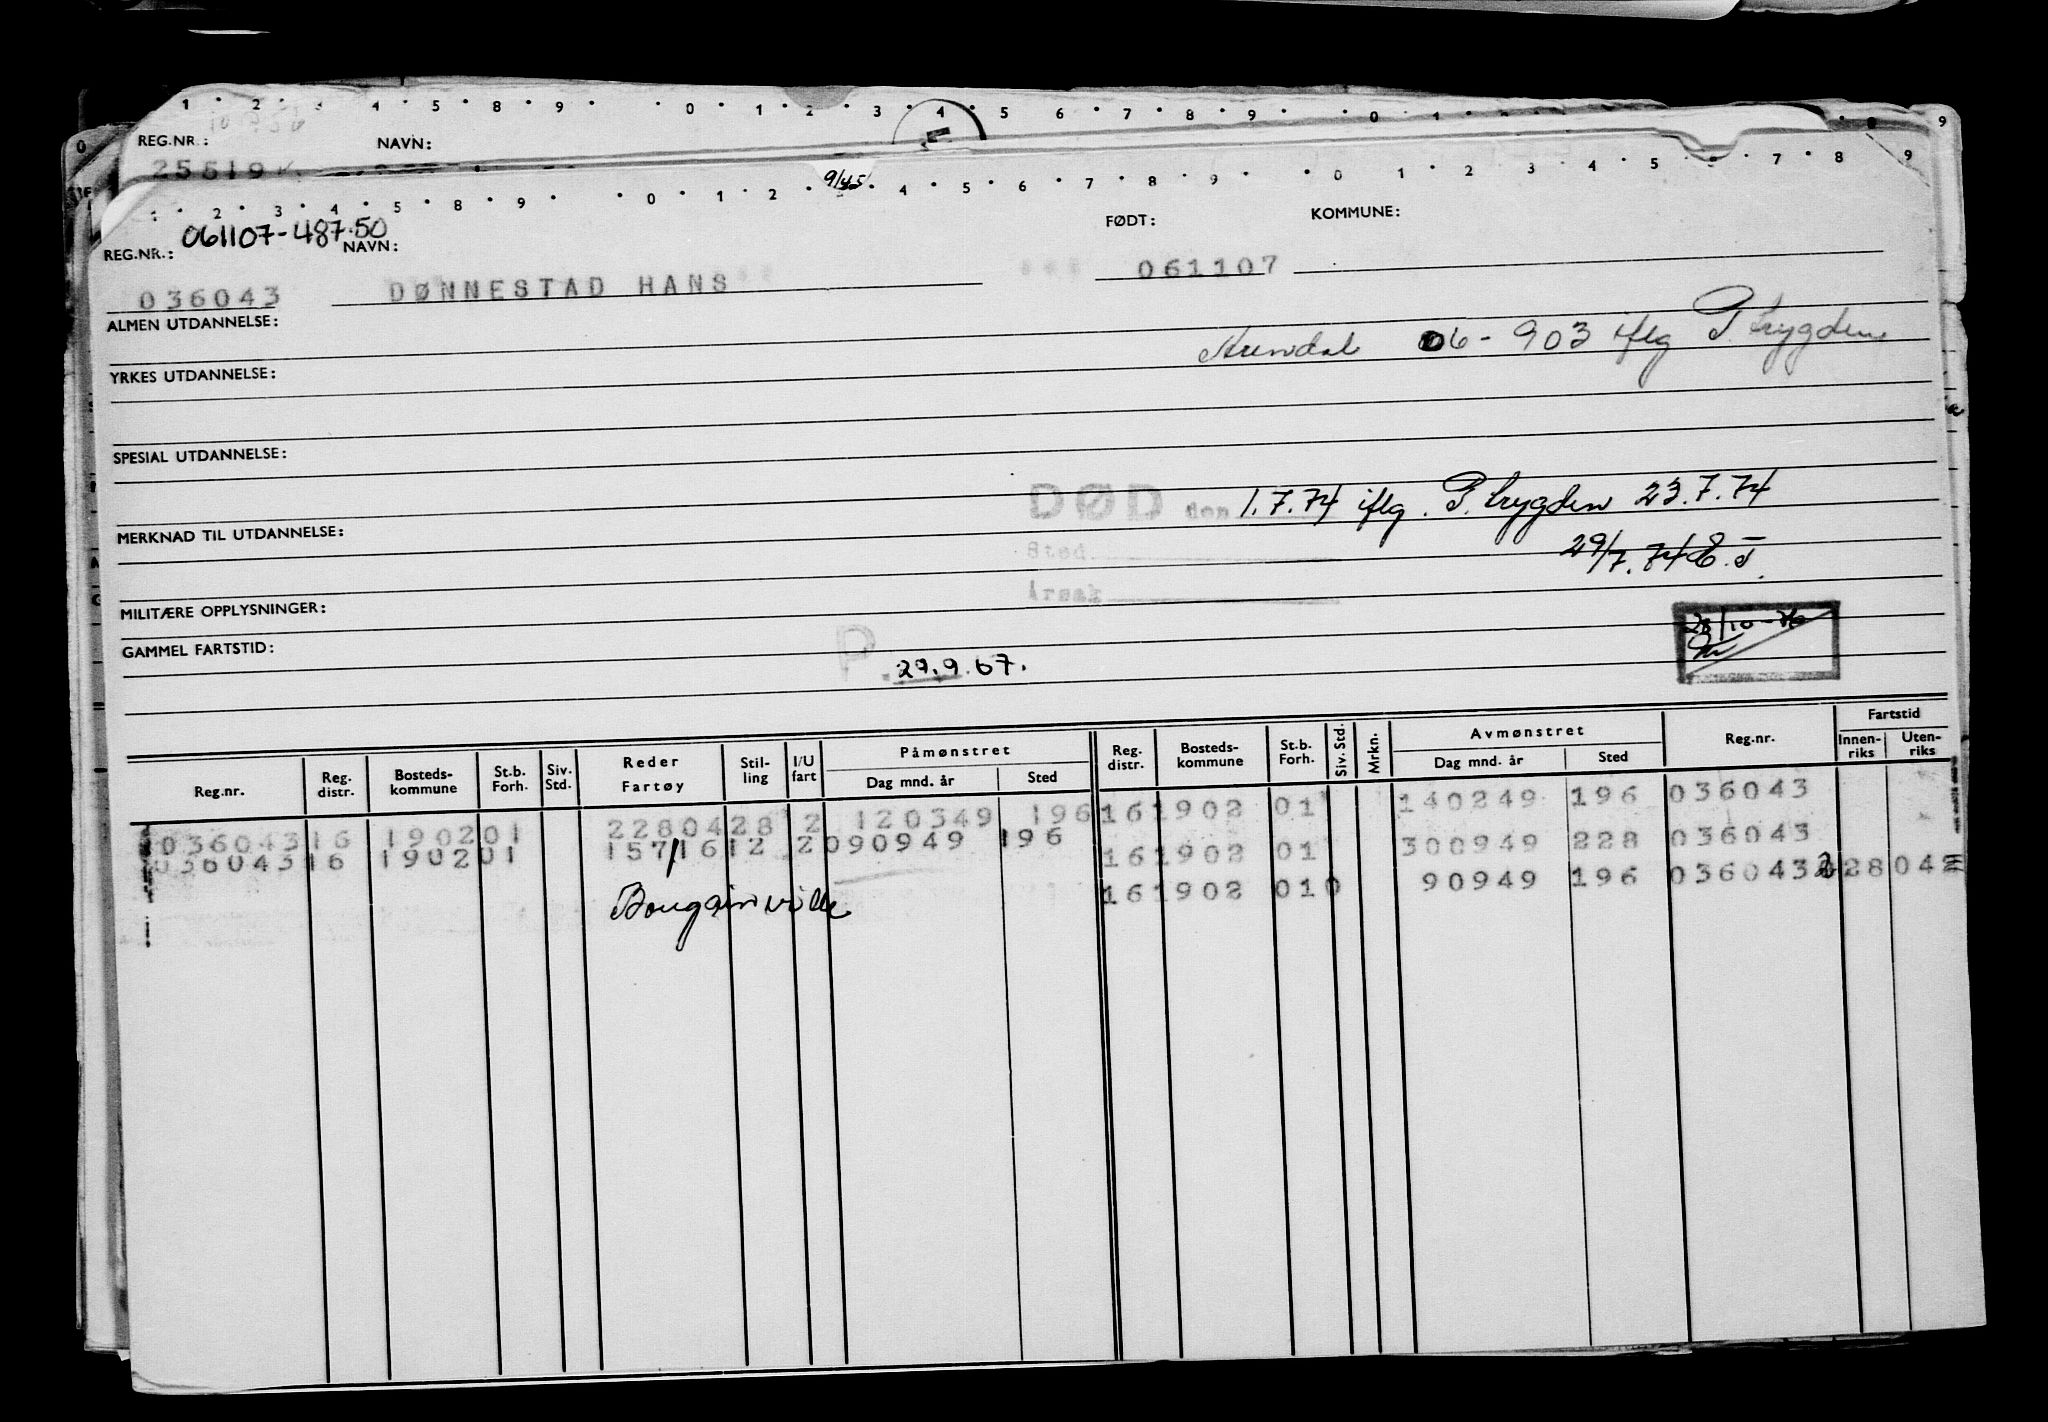 1 2 3 4 5 8 9 0 1 2 3 4 5 6 7 8 9 0 1 9
REG.NR.: NAVN:
25519
9/45
1 2 3 4 5 8 9 0 1 2 4 5 6 7 8 9 0 1 2 3 4 5 7 8 9
REG.NR.: 061107-487.50 NAVN: FØDT: KOMMUNE:
036043 DØNNESTAD HANS 061107
ALMEN UTDANNELSE:
Arendal 06-903 iflg P. trygden
YRKES UTDANNELSE:
SPESIAL UTDANNELSE:
DØD den 1.7.74 iflg. P. trygden 23.7.74
MERKNAD TIL UTDANNELSE:
Sted 29/7.74 E.T.
Årsak
MILITÆRE OPPLYSNINGER:
GAMMEL FARTSTID:
P. 29.9.67.
Reg.nr. Reg. distr. Bosteds-kommune St.b. Forh. Siv. Std. Reder Fartøy Stil-ling I/U fart Påmønstret Dag mnd. år Sted Reg. distr. Bosteds-kommune St.b. Forh. Siv. Std. Mrkn. Avmønstret Dag mnd. år Sted Reg.nr. Fartstid Innen-riks Uten-riks
036043 16 1902 01 22804 28 2 120349 196 16 1902 01 140249 196 036043
036043 16 1902 01 1571612 2 090949 196 16 1902 01 300949 228 036043
Bougainville 16 1902 010 90949 196 036043 2 28 04